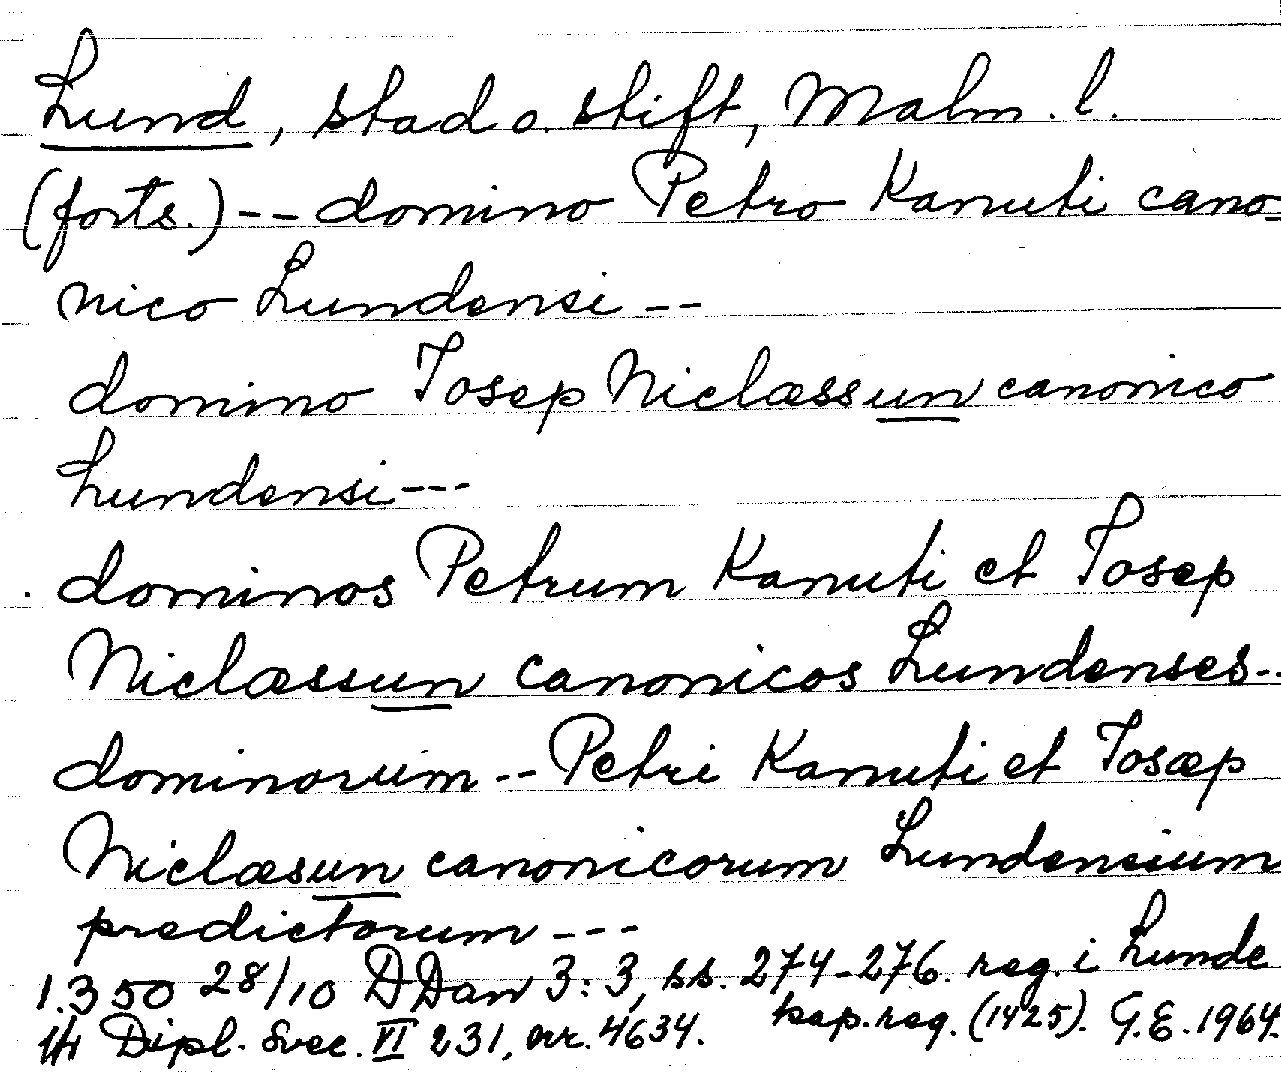 Lund, stad o. stift, Malm. l.
(forts.) -- domino Petro Kanuti cano-
nico Lundensi --
domino Iosep Niclæssun canonico
Lundensi ---
dominos Petrum Kanuti et Iosep
Niclæssun canonicos Lundenses--
dominorum -- Petri Kanuti et Iosæp
Niclæsun canonicorum Lundensium
predictorum ---
1350 28/10 DDan 3:3, ss. 274-276. reg. i Lunde
Dipl. Svec. VI 231, nr. 4634. kap. reg. (1425). G.E. 1964.